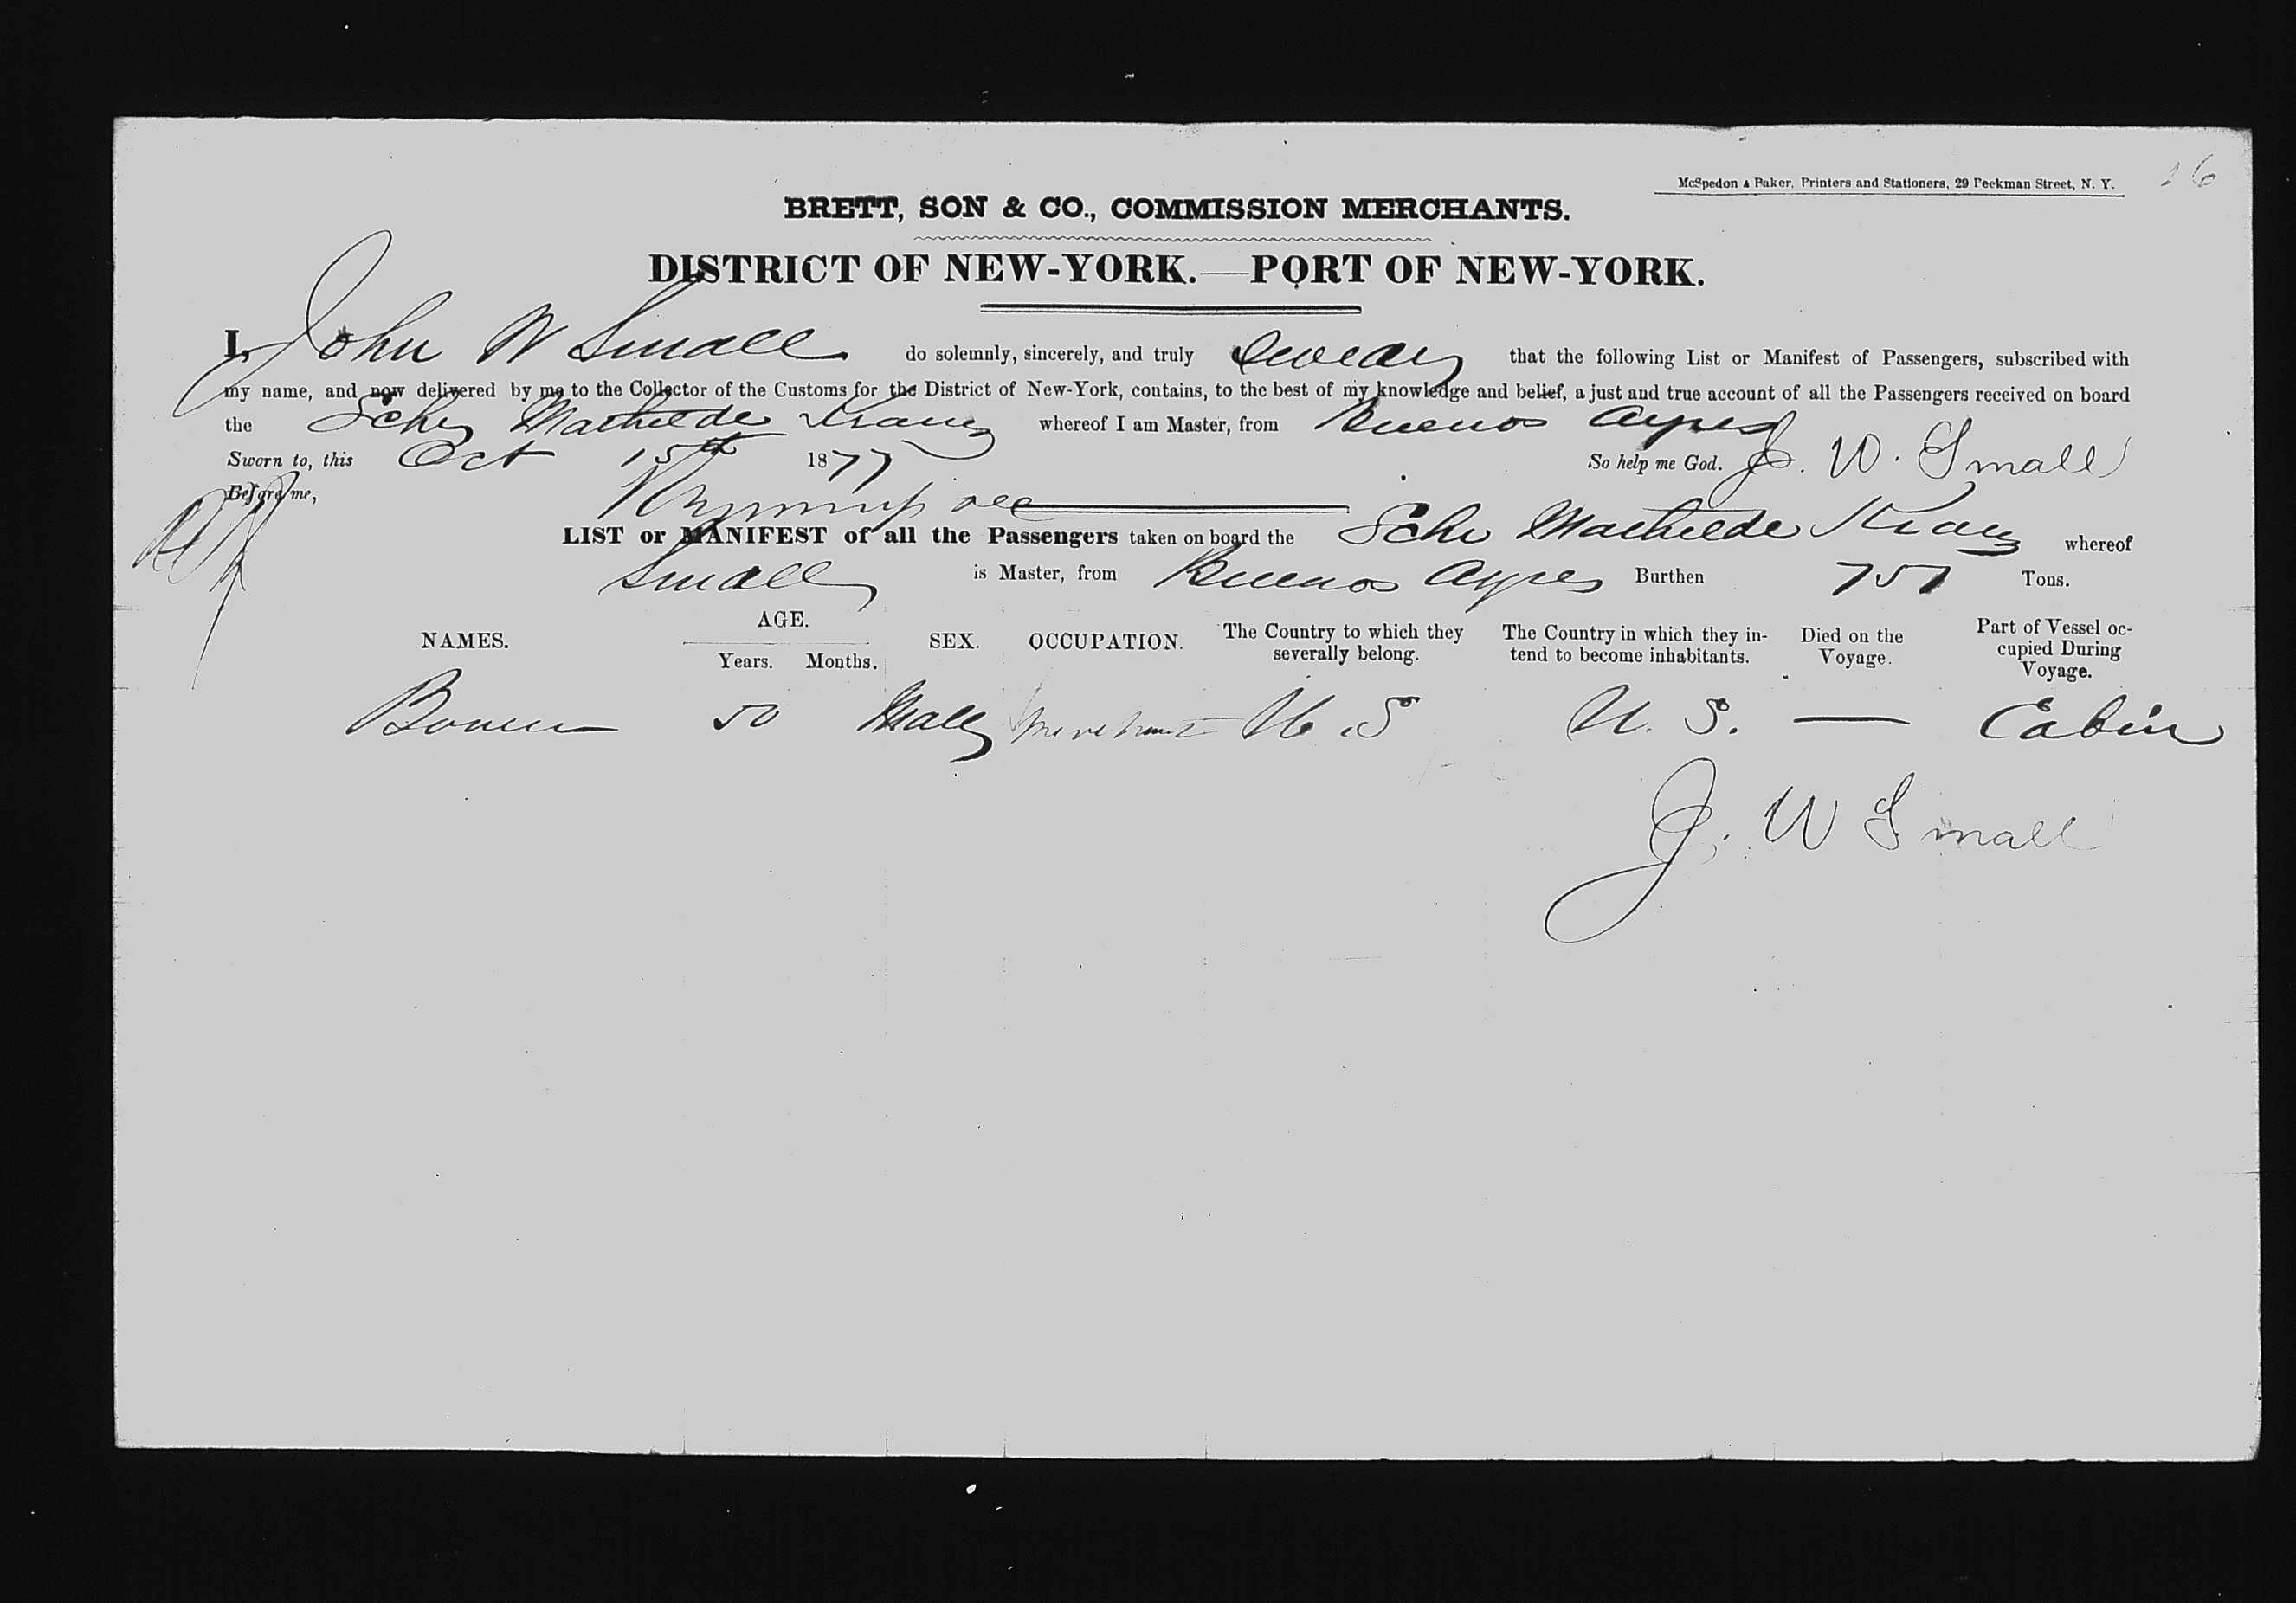 16
McSpedon & Baker, Printers and Stationers, 29 Beekman Street, N. Y.
BRETT, SON & CO., COMMISSION MERCHANTS.
DISTRICT OF NEW-YORK.—PORT OF NEW-YORK.
I, John W Small do solemnly, sincerely, and truly Swear that the following List or Manifest of Passengers, subscribed with
my name, and now delivered by me to the Collector of the Customs for the District of New-York, contains, to the best of my knowledge and belief, a just and true account of all the Passengers received on board
the Schr Mathilde Kranz whereof I am Master, from Buenos Ayres
Sworn to, this Oct 15th 1877 So help me God. J. W. Small
Before me,
LIST or MANIFEST of all the Passengers taken on board the Schr Mathilde Kranz whereof
Small is Master, from Buenos Ayres Burthen 751 Tons.
NAMES. AGE. Years. Months. SEX. OCCUPATION. The Country to which they severally belong. The Country in which they intend to become inhabitants. Died on the Voyage. Part of Vessel occupied During Voyage.
Bowen 50 Male Merchant U.S U.S. — Cabin
J. W Small